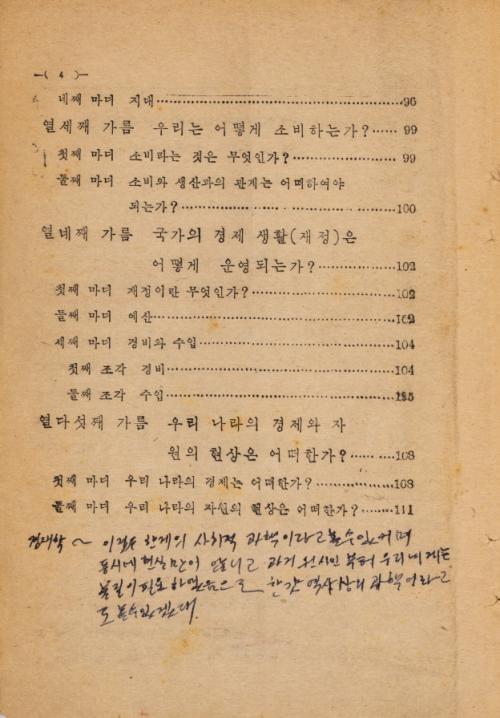 —( 4 )—
네째 마디 지대……………………………………96
열세째 가름 우리는 어떻게 소비하는가?……99
첫째 마디 소비라는 것은 무엇인가?……………99
둘째 마디 소비와 생산과의 관계는 어떠하여야
되는가?……………………………………100
열네째 가름 국가의 경제 생활(재정)은
어떻게 운영되는가?……………102
첫째 마디 재정이란 무엇인가?……………………102
둘째 마디 예산……………………………………102
세째 마디 경비와 수입……………………………104
첫째 조각 경비……………………………………104
둘째 조각 수입……………………………………105
열다섯째 가름 우리 나라의 경제와 자
원의 현상은 어떠한가?………108
첫째 마디 우리 나라의 경제는 어떠한가?………108
둘째 마디 우리 나라의 자원의 현상은 어떠한가?………111
경제학 ~ 사회적 과학이라고 볼수있으며
현실만이 아니고 과거 원시인 부터 우리에게는
물질이 필요 하였음으로 역사상의 과학이라고
도 볼수있겠다.